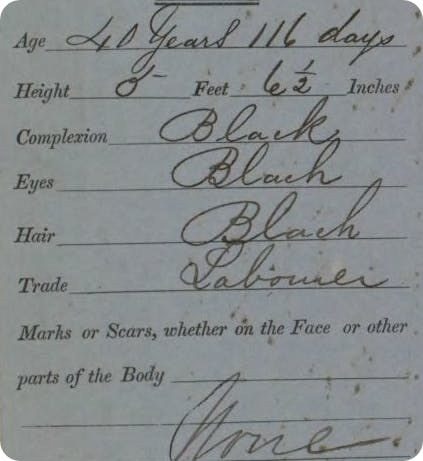 Age 40 Years 116 days
Height 5 Feet 6 1/2 Inches
Complexion Black
Eyes Black
Hair Black
Trade Labourer
Marks or Scars, whether on the Face or other
parts of the Body
None.